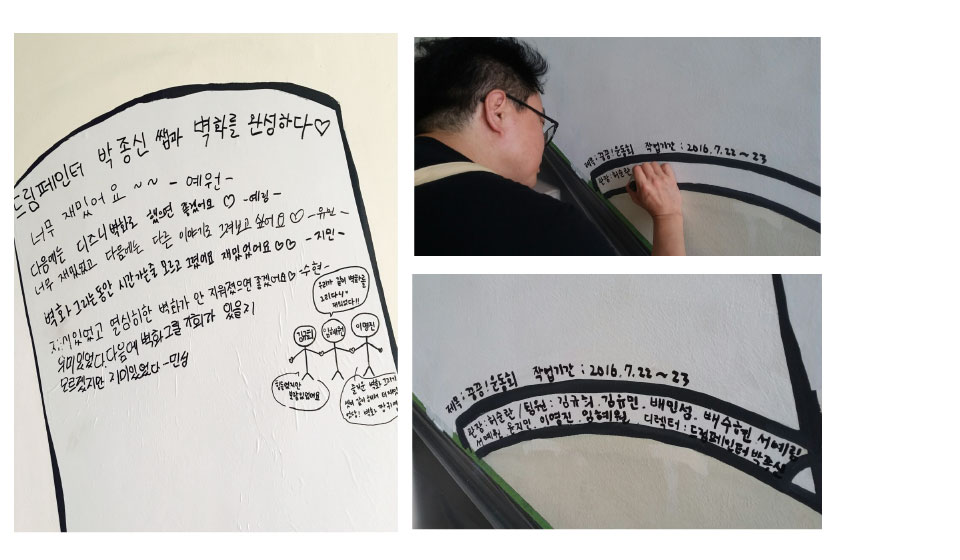 드림페인터 박종신 쌤과 벽화를 완성하다♡
너무 재밌어요~~ -예원-
다음에는 디즈니벽화로 했으면 좋겠어요♡ -예림-
너무 재밌었고 다음에는 다른 이야기로 그려보고 싶어요♡
벽화 그리는동안 시간가는줄 모르고 그렸어요 재밌었어요♡♡ -지민-
재미있었고 열심히한 벽화가 안 지워졌으면 좋겠어요♡ -수현-
재미있었다. 다음에 벽화 그릴 기회가 있을지
모르겠지만 재미있었다 -민성
우리가 같이 벽화를
그리다니!!
재밌었다!!
김규희
임혜원
이영진
힘들었지만
보람있었어요
제목:꿀꿈!운동회 작업기간 : 2016.7.22~23
관장:허순란
제목:꿀꿈!운동회 작업기간 : 2016.7.22~23
관장:허순란/팀원:김규희.김유민.배민성.배수현 서예림
서예원 윤지민.이영진.임혜원. 디렉터:드림페인터 박종신